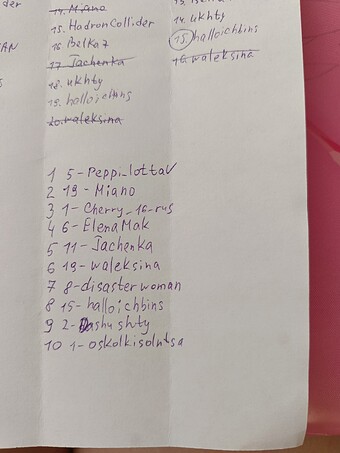 der
14. Miano
15. HadronCollider
16 Belka7
17. Jachenka
18. ukhty
19. halloichbins
20. waleksina
14. ukhty
15. halloichbins
16. waleksina
1 5 - Peppi_lottaV
2 19 - Miano
3 1 - Cherry_16_rus
4 6 - ElenaMak
5 11 - Jachenka
6 19 - waleksina
7 8 - disaster woman
8 15 - halloichbins
9 2 - Dashushty
10 1 - oskolkisolntsa